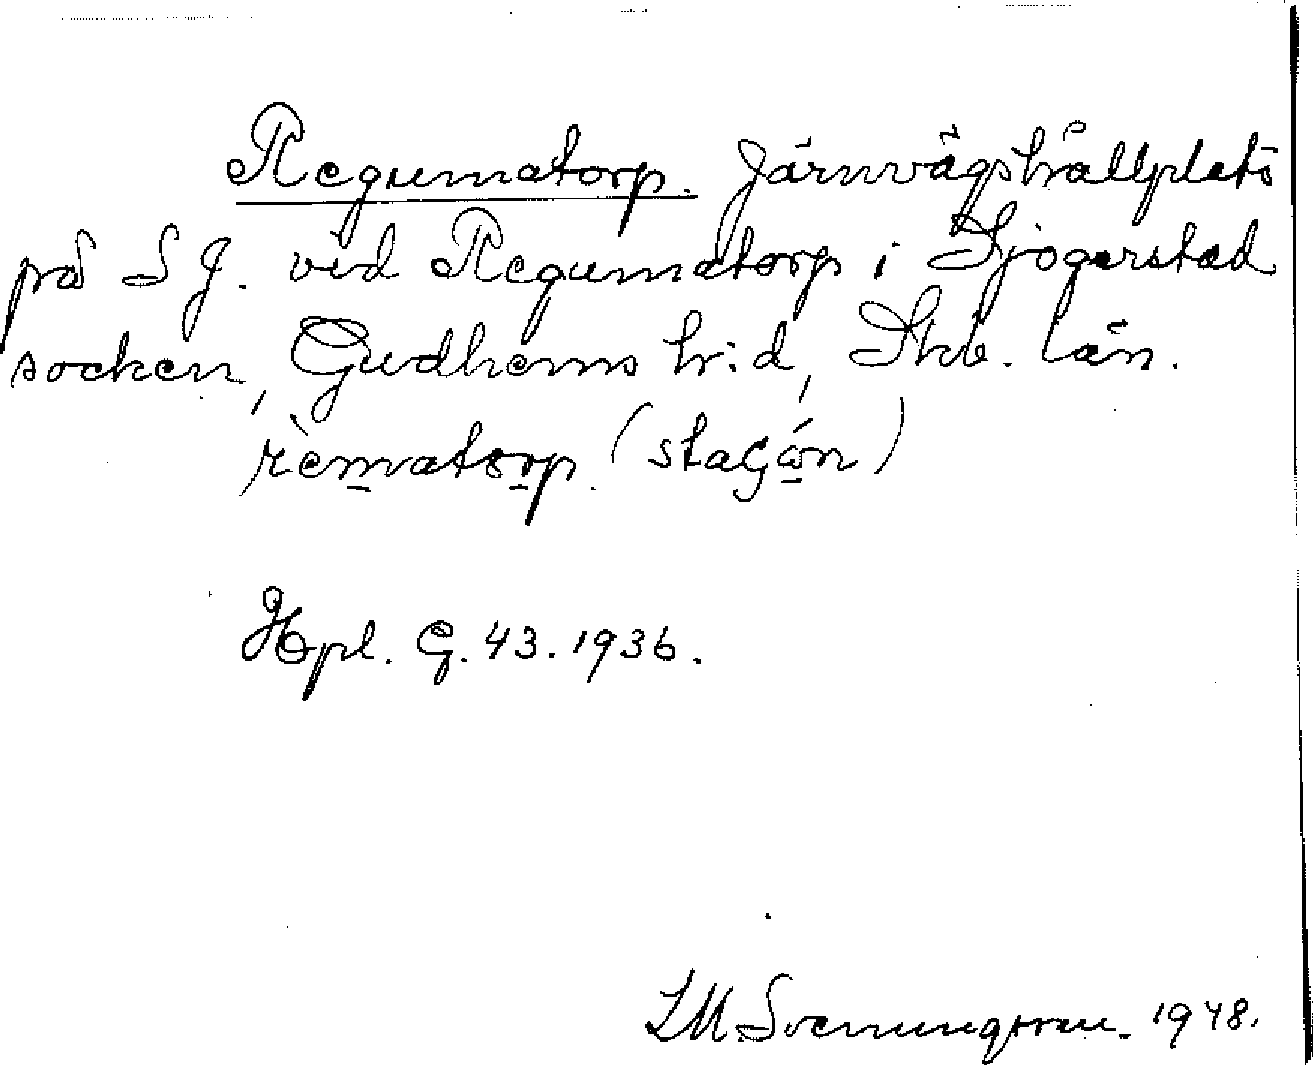 Regumatorp. Järnvägshållplats
på S J. vid Regumatorp i Sjogerstad
socken, Gudhems h:d, Skb. län.
rèmatorp. (staGón)
Hpl. G. 43. 1936.
SM Svenungsson. 1948.